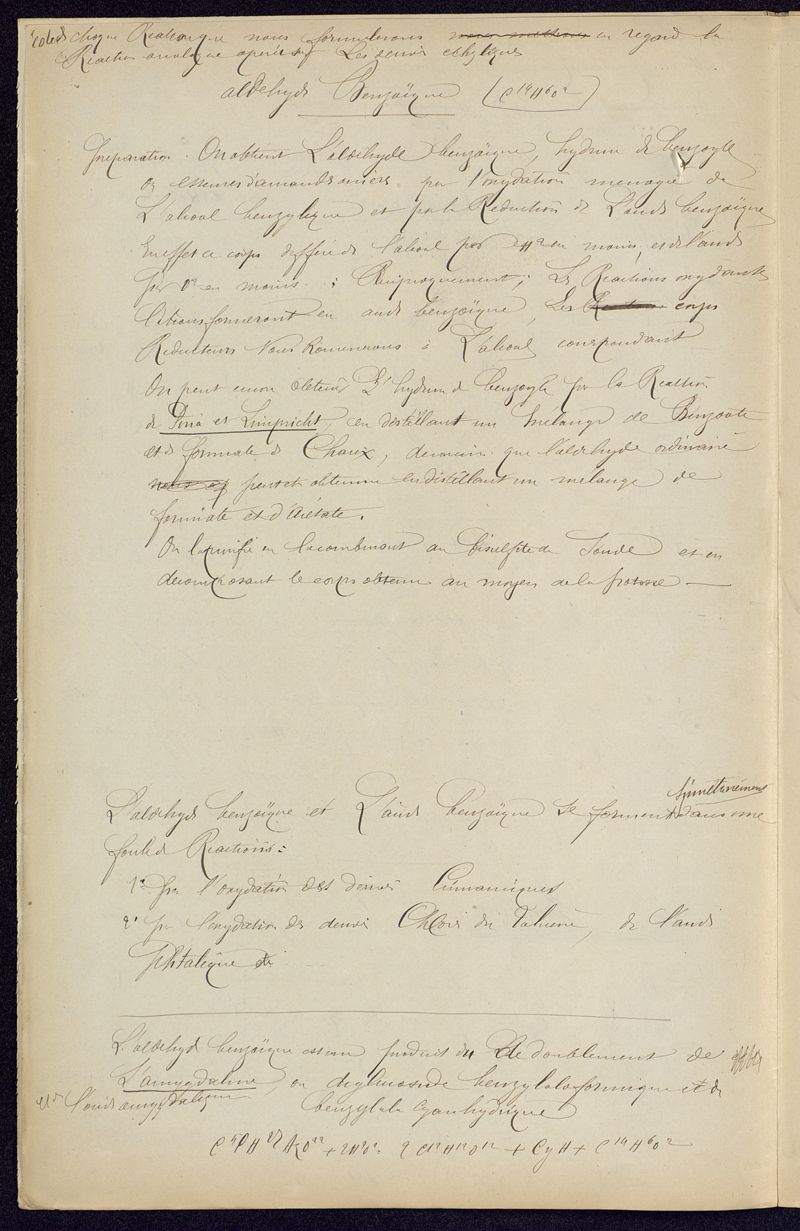 chaque Réaction que nous formulerons en regard la
Réaction analogue opérée sur Les derivés ethyliques
aldehyde Benzoïque (C14H6O2)
Preparation. On obtient L'aldehyde benzoïque, hydrure de benzoyle
ou essence d'amandes amères par l'oxydation menagée de
L'alcool benzylique et par la Reduction de L'acide benzoïque
En effet ce corps differe de l'alcool par H2 en moins, et de l'acide
par O2 en moins : Reciproquement; Les Reactions oxydantes
le transformeront en acide benzoïque, les Reactions corps
Reducteurs Nous Ramenerons à L'alcool correspondant
On peut encore obtenir L'hydrure de benzoyle par la Reaction
de Piria et Limpricht, en distillant un mélange de Benzoate
et de formiate de Chaux, de même que l'aldehyde ordinaire
peut etre obtenue en distillant un melange de
formiate et d'Acétate.
On la purifie en la combinant au Bisulfite de Soude et en
decomposant le corps obtenu au moyen de la potasse —
Simultanément
L'aldehyde benzoïque et L'acide benzoïque se forment dans une
foule de Reactions:
1° par l'oxydation des derivés Cinnamiques
2° par l'oxydation des derivés Chlorés du Toluène, de l'acide
phtalique etc
L'aldehyde benzoïque est un produit du Dedoublement de
L'amygdaline, ou diglucoside benzylaloformique et de
l'acide amygdalique benzylalo cyanhydrique
C40H27AzO22 + 2H2O2 = 2 C12H12O12 + CyH + C14H6O2